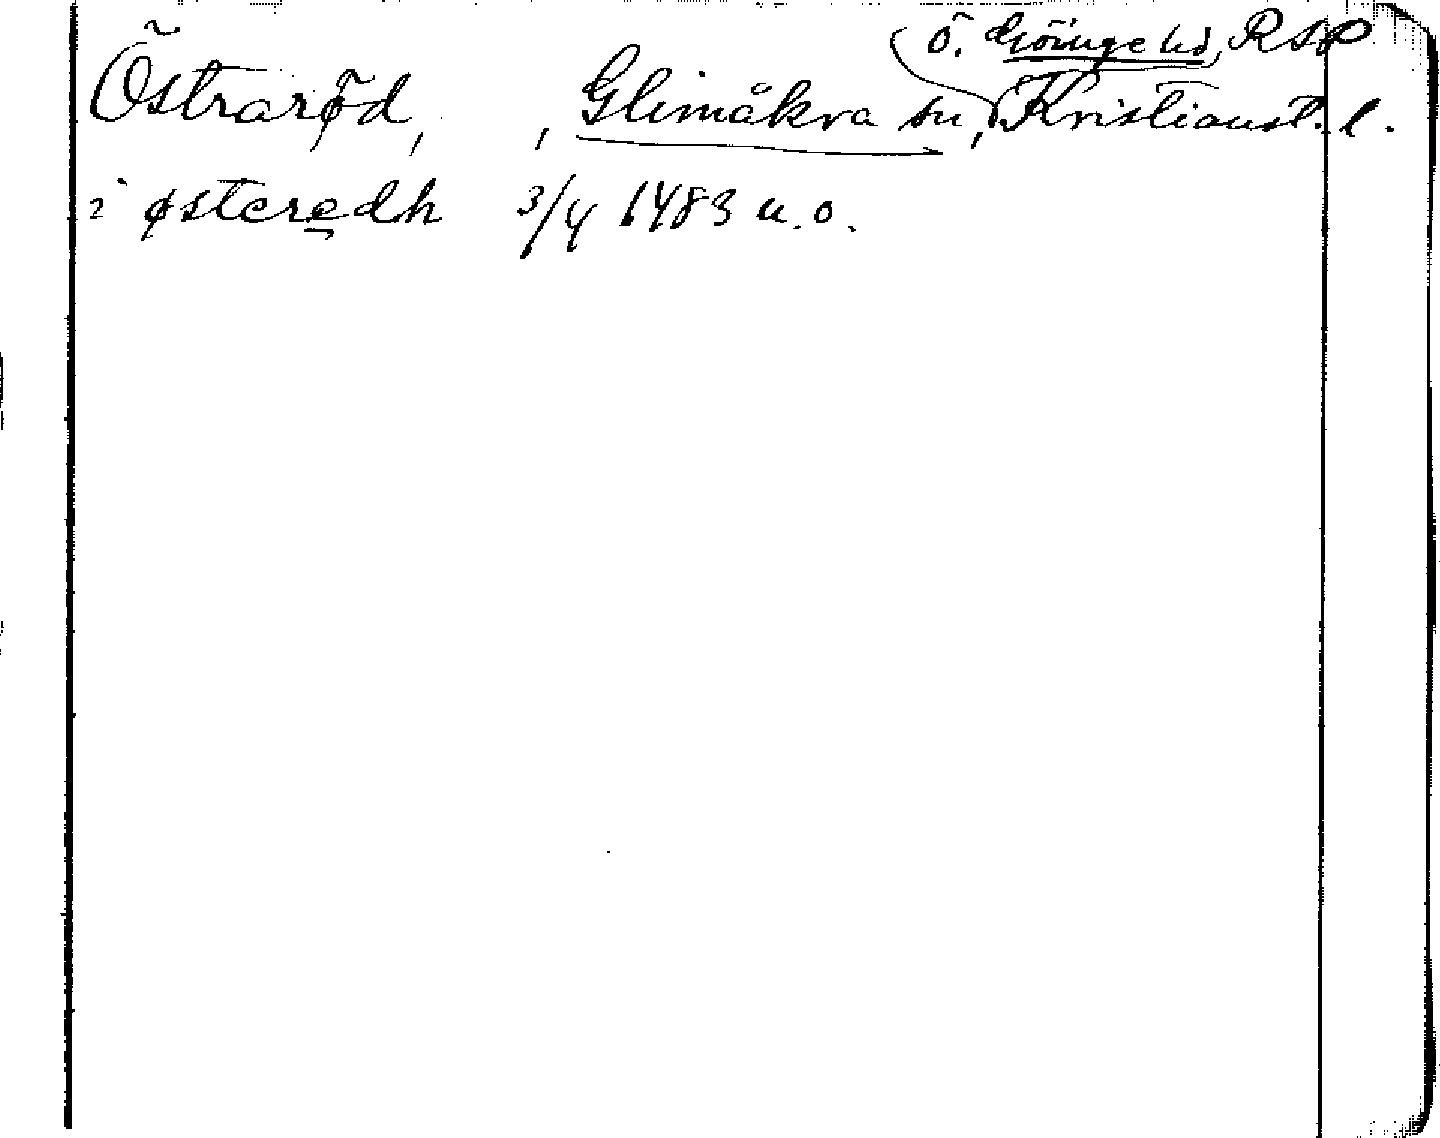 Ö. Göinge hd, RSP
Östraröd, , Glimåkra sn, Kristianst. l.
i østeredh 3/4 1483 u. o.